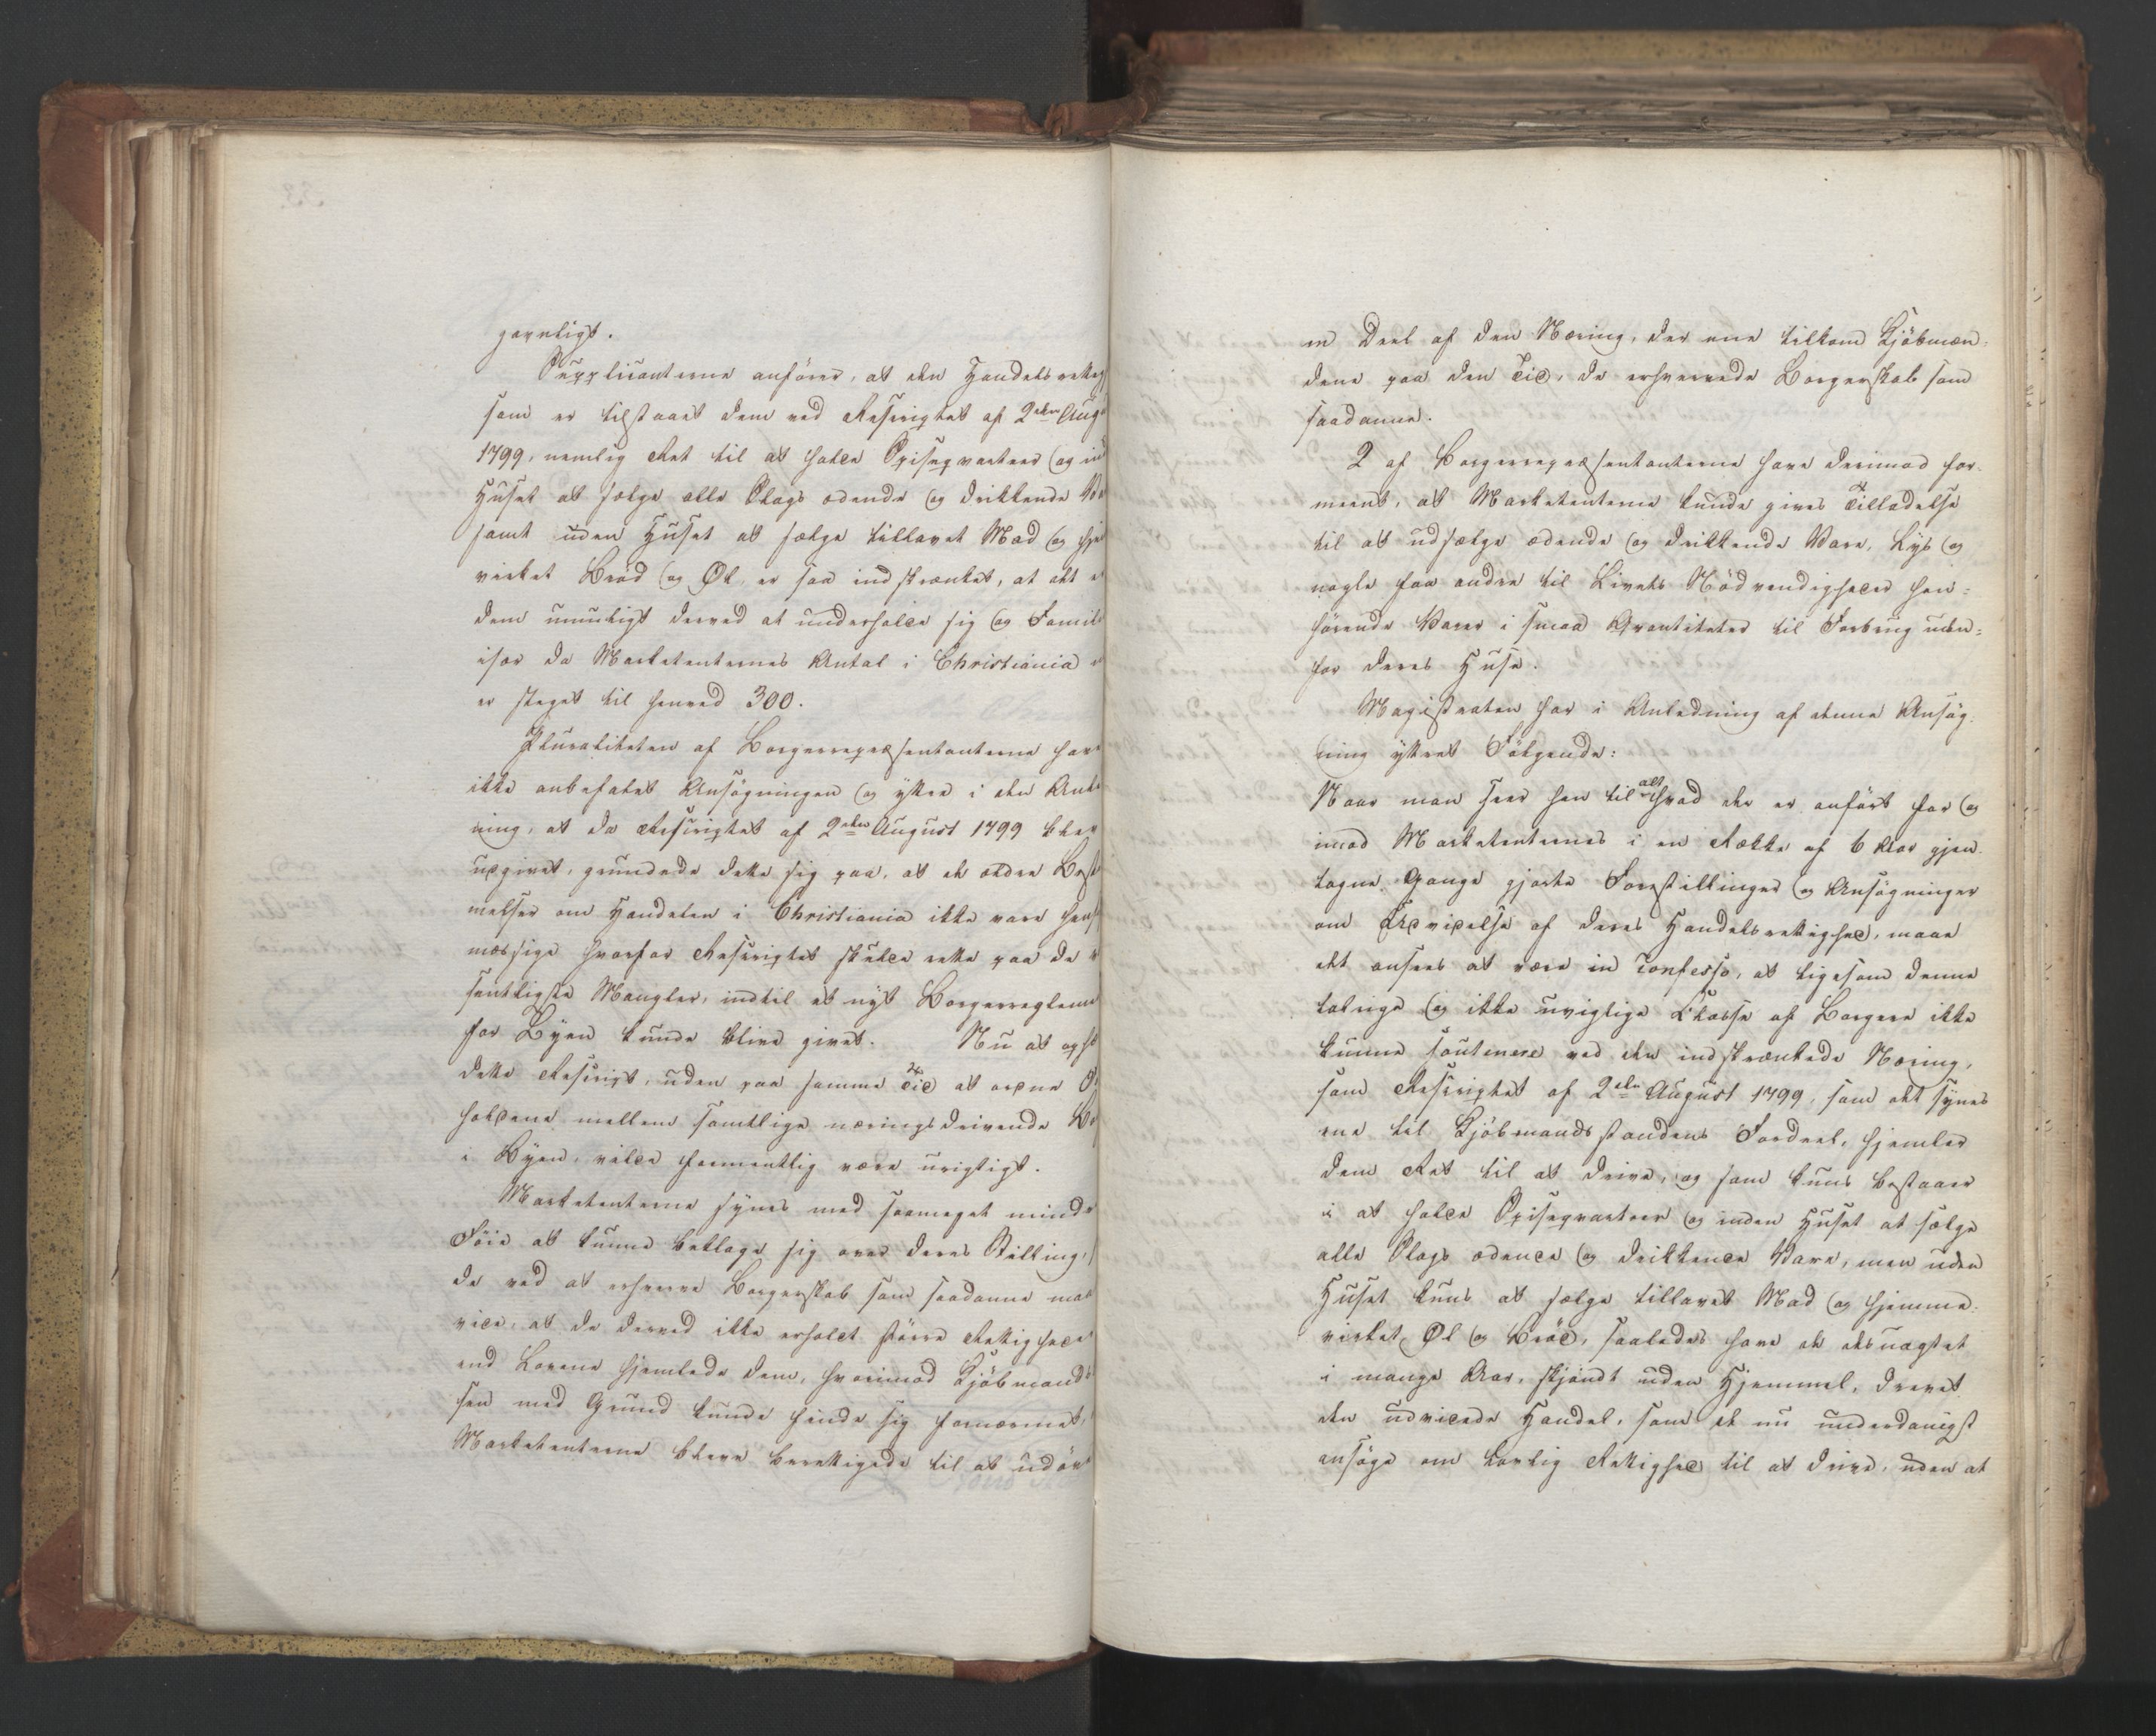 gavnligt.
Supplicanterne anförer, at den Handelsrettig
som er tilstaaet dem ved Rescriptet af 2den Aug
1799, nemlig Ret til at holde Spiseqvarteer og ind
Huset at sælge alle Slags ædende og drikkende Va
samt uden Huset at sælge tillavet Mad og hje
virket Bröd og Øl, er saa indskrænket, at det e
dem umuligt derved at underholde sig og Famili
især da Marketenternes Antal i Christiania
er steget til henved 300.
Pluraliteten af Borgerrepræsentanterne have
ikke anbefalet Ansögningen og yttre i den Anle
ning, at da Rescriptet af 2den August 1799 blev
udgivet, grundede dette sig paa, at de ældre Best
melser om Handelen i Christiania ikke vare hens
mæssige hvorfor Rescriptet skulde rette paa de v
sentligste Mangler, indtil et nyt Borgerreglem
for Byen kunde blive givet. Nu at oph
dette Rescript, uden paa samme Tid at ordne F
holdene mellem samtlige næringsdrivende Bo
i Byen, vilde formentlig være urigtigt.
Marketenterne synes med saameget mindr
Föie at kunne beklage sig over deres Stilling,
de ved at erhverve Borgerskab som saadanne maa
vide, at de derved ikke erholdt större Rettighede
end Lovene hjemlede dem, hvorimod Kjöbmands
sen med Grund kunde finde sig fornærmet,
Marketenterne bleve berettigede til at udöve
en Deel af den Næring, der ene tilkom Kjöbmæn-
dene paa den Tid, de erhvervede Borgerskab som
saadanne.
2 af Borgerrepræsentanterne have derimod for-
meent, at Marketenterne kunde gives Tilladelse
til at udsælge ædende og drikkende Vare, Lys og
nogle faa andre til Livets Nödvendigheder hen-
hörende Varer i smaa Qvantiteter til Forbrug uden-
for deres Huse.
Magistraten har i Anledning af denne Ansög-
ning yttret Fölgende:
Naar man seer hen til alt hvad der er anfört for og
imod Marketenternes i en Række af 6 Aar gjen-
tagne Gange gjorte Forestillinger og Ansögninger
om Udvidelse af deres Handelsrettighed, maae
det ansees at være in confesso, at ligesom denne
talrige og ikke uvigtige Klasse af Borgere ikke
kunne soutenere ved den indskrænkede Næring,
som Rescriptet af 2den August 1799, som det synes
ene til Kjöbmandsstandens Fordeel, hjemler
dem Ret til at drive, og som kuns bestaaer
i at holde Spiseqvarteer og inden Huset at sælge
alle Slags ædende og drikkende Vare, men uden
Huset kuns at sælge tillavet Mad og hjemme-
virket Øl og Bröd, saaledes have de desuagtet
i mange Aar, skjöndt uden Hjemmel, drevet
den udvidede Handel, som de nu underdanigst
ansöge om lovlig Rettighed til at drive, uden at